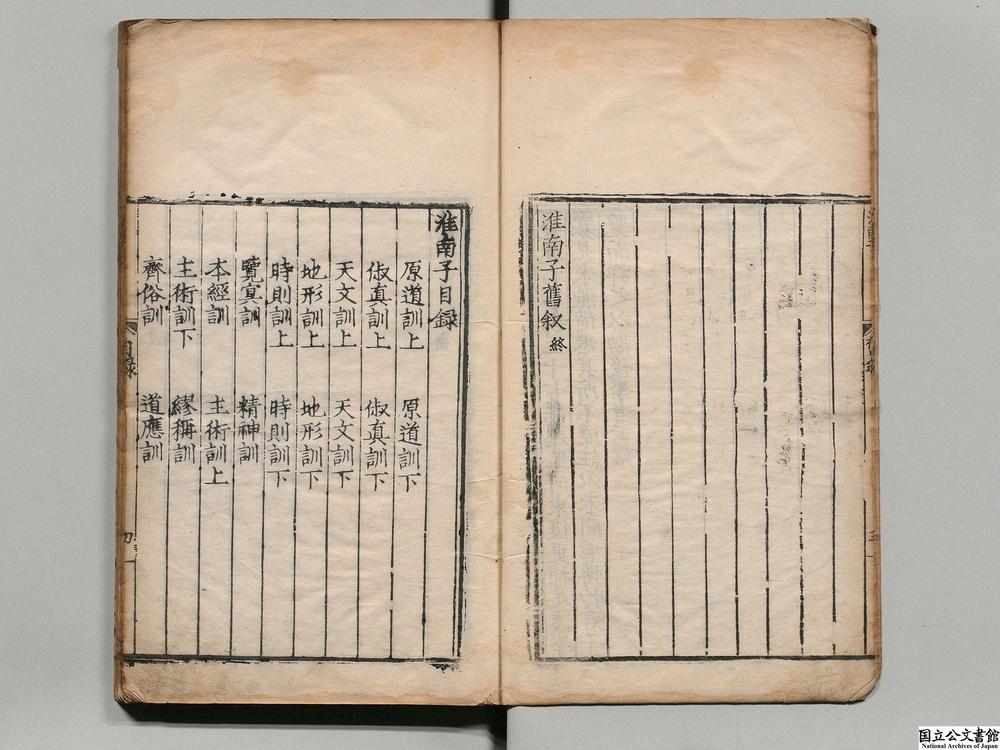 淮南子舊叙終
淮南子目録
原道訓上 原道訓下
俶真訓上 俶真訓下
天文訓上 天文訓下
地形訓上 地形訓下
時則訓上 時則訓下
覽冥訓 精神訓
本經訓 主術訓上
主術訓下 繆稱訓
齊俗訓 道應訓
目録
国立公文書館
National Archives of Japan